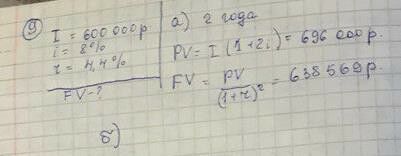 9 I = 600 000 р
i = 8%
r = 4,4%
FV - ?
а) 2 года
PV = I (1 + 2i) = 696 000 р.
FV = PV / (1+r)² = 638 569 р.
б)